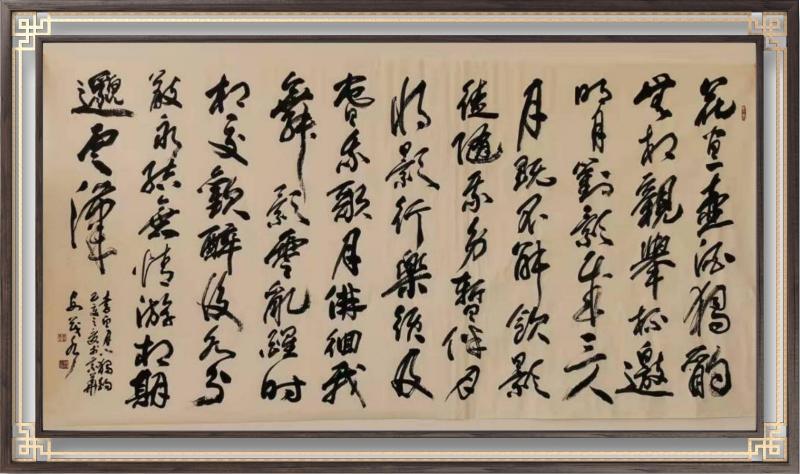 花間一壺酒獨酌
無相親舉杯邀
明月對影成三人
月既不解飲影
徒隨我身暫伴月
將影行樂須及
春我歌月徘徊我
舞影零亂醒時
相交歡醉後各分
散永結無情游相期
邈雲漢
李白月下獨酌
己亥之